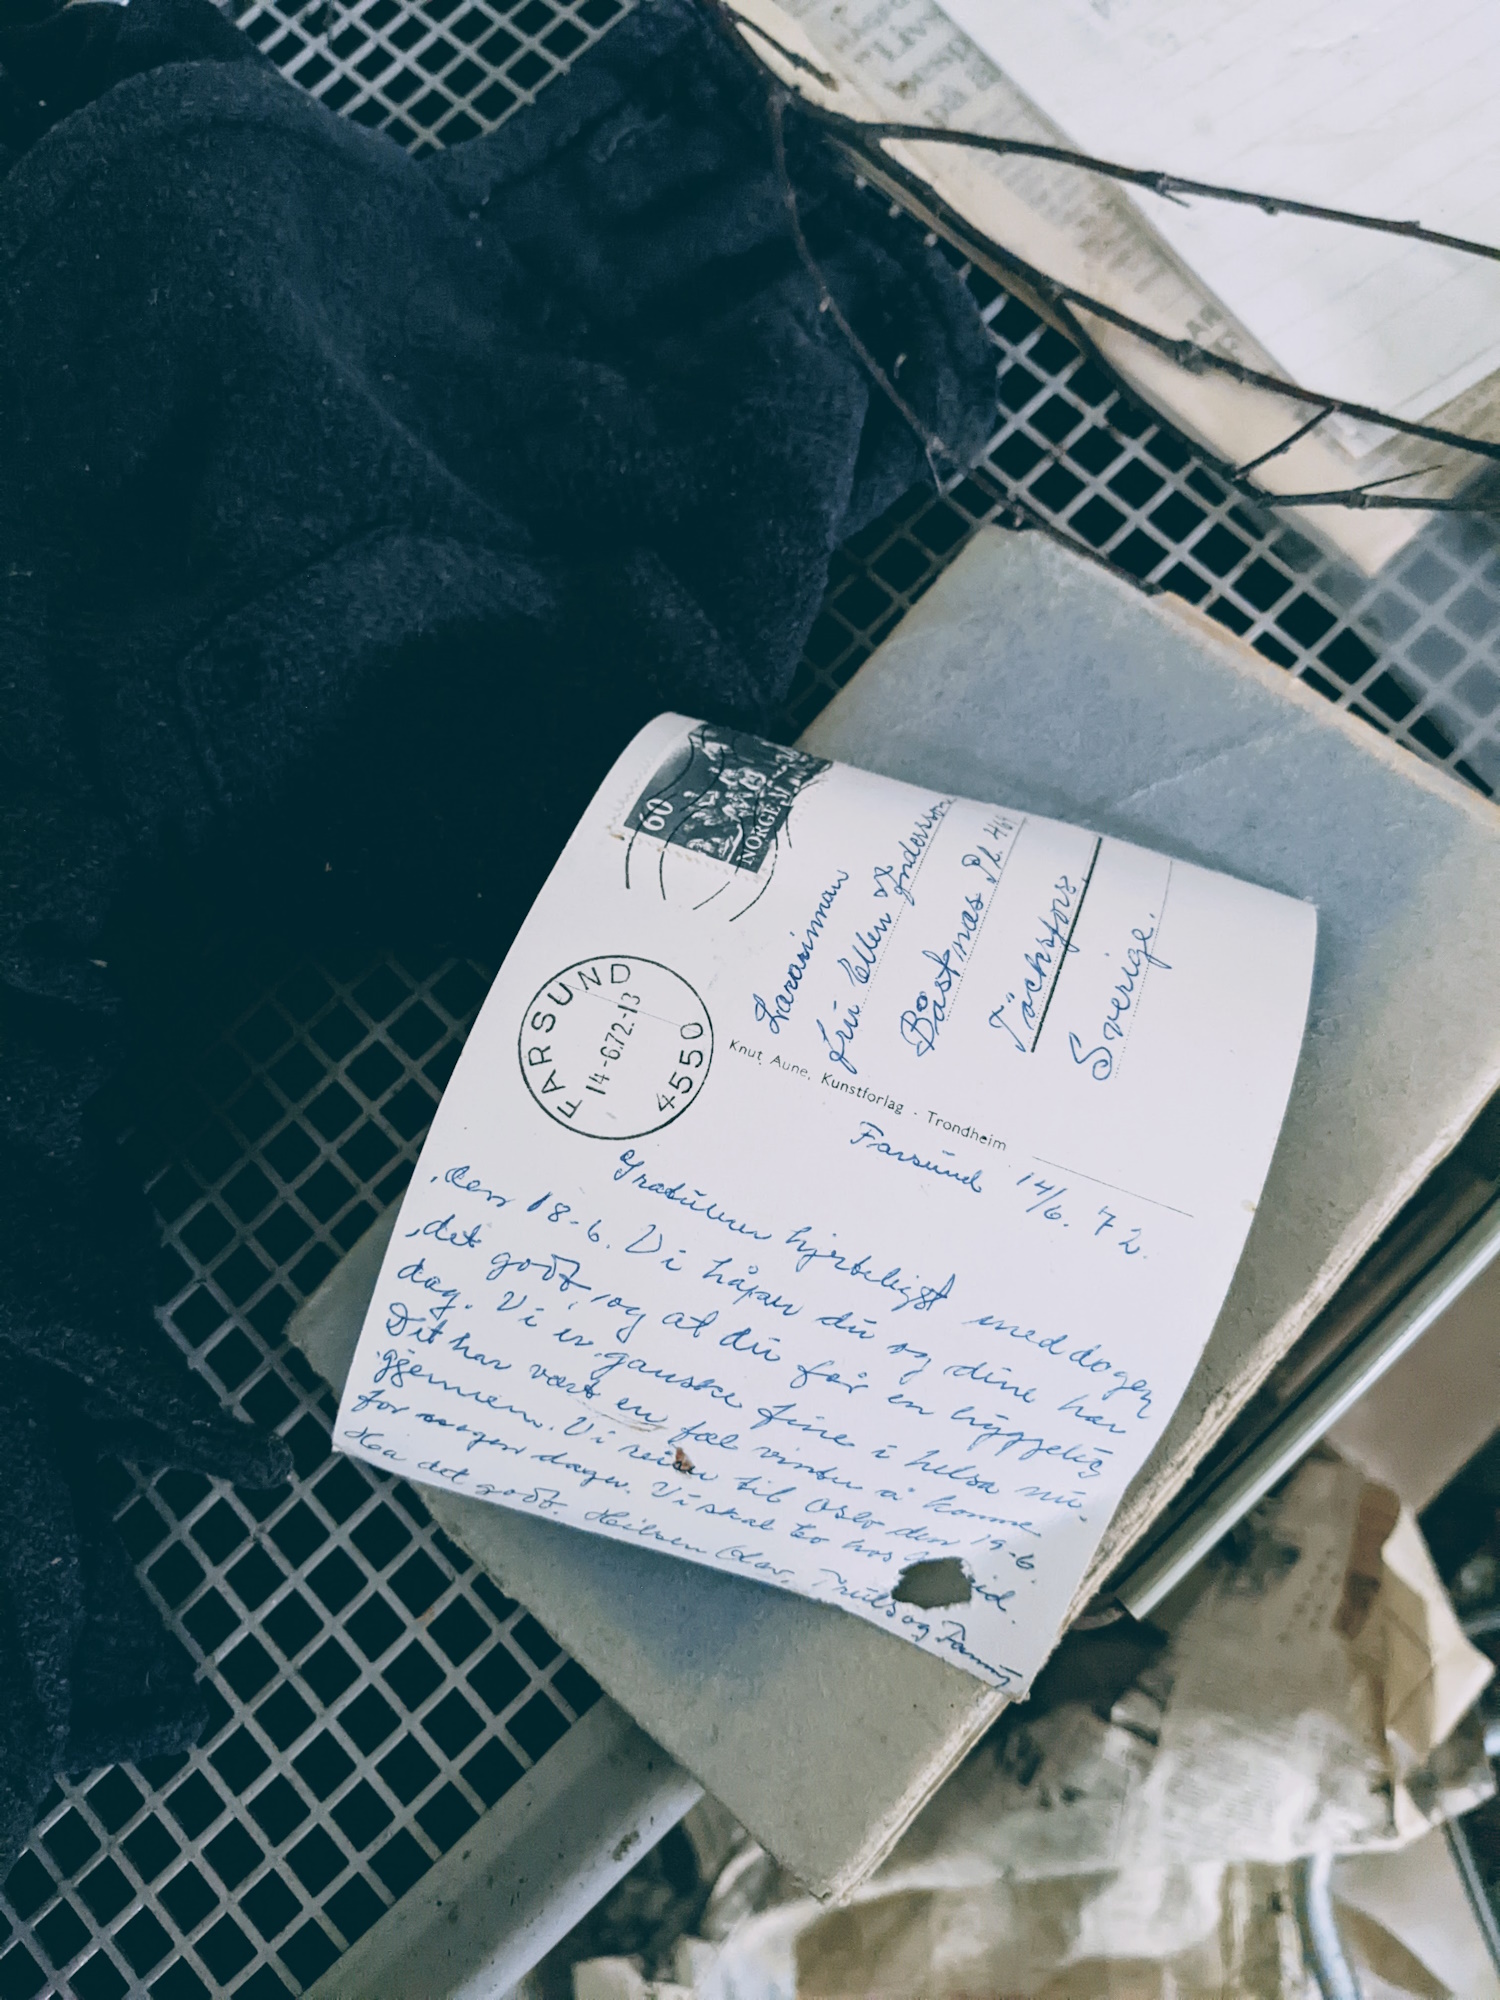 60
NORGE
FARSUND
14-6.72-13
4550
Lärarinnan
Fru Ellen Andersson
Båstnäs Pl. 461
Töcksfors.
Sverige.
Knut Aune, Kunstforlag · Trondheim
Farsund 14/6. 72.
Gratulerer hjerteligst med dagen
den 18-6. Vi håper du og dine har
det godt, og at du får en hyggelig
dag. Vi er ganske fine i helsa nu.
Det har vært en fæl vinter å komme
gjennem. Vi reiser til Oslo den 19-6.
for noen dager. Vi skal bo hos
Ha det godt. Hilsen Olav, Truls og Fanny